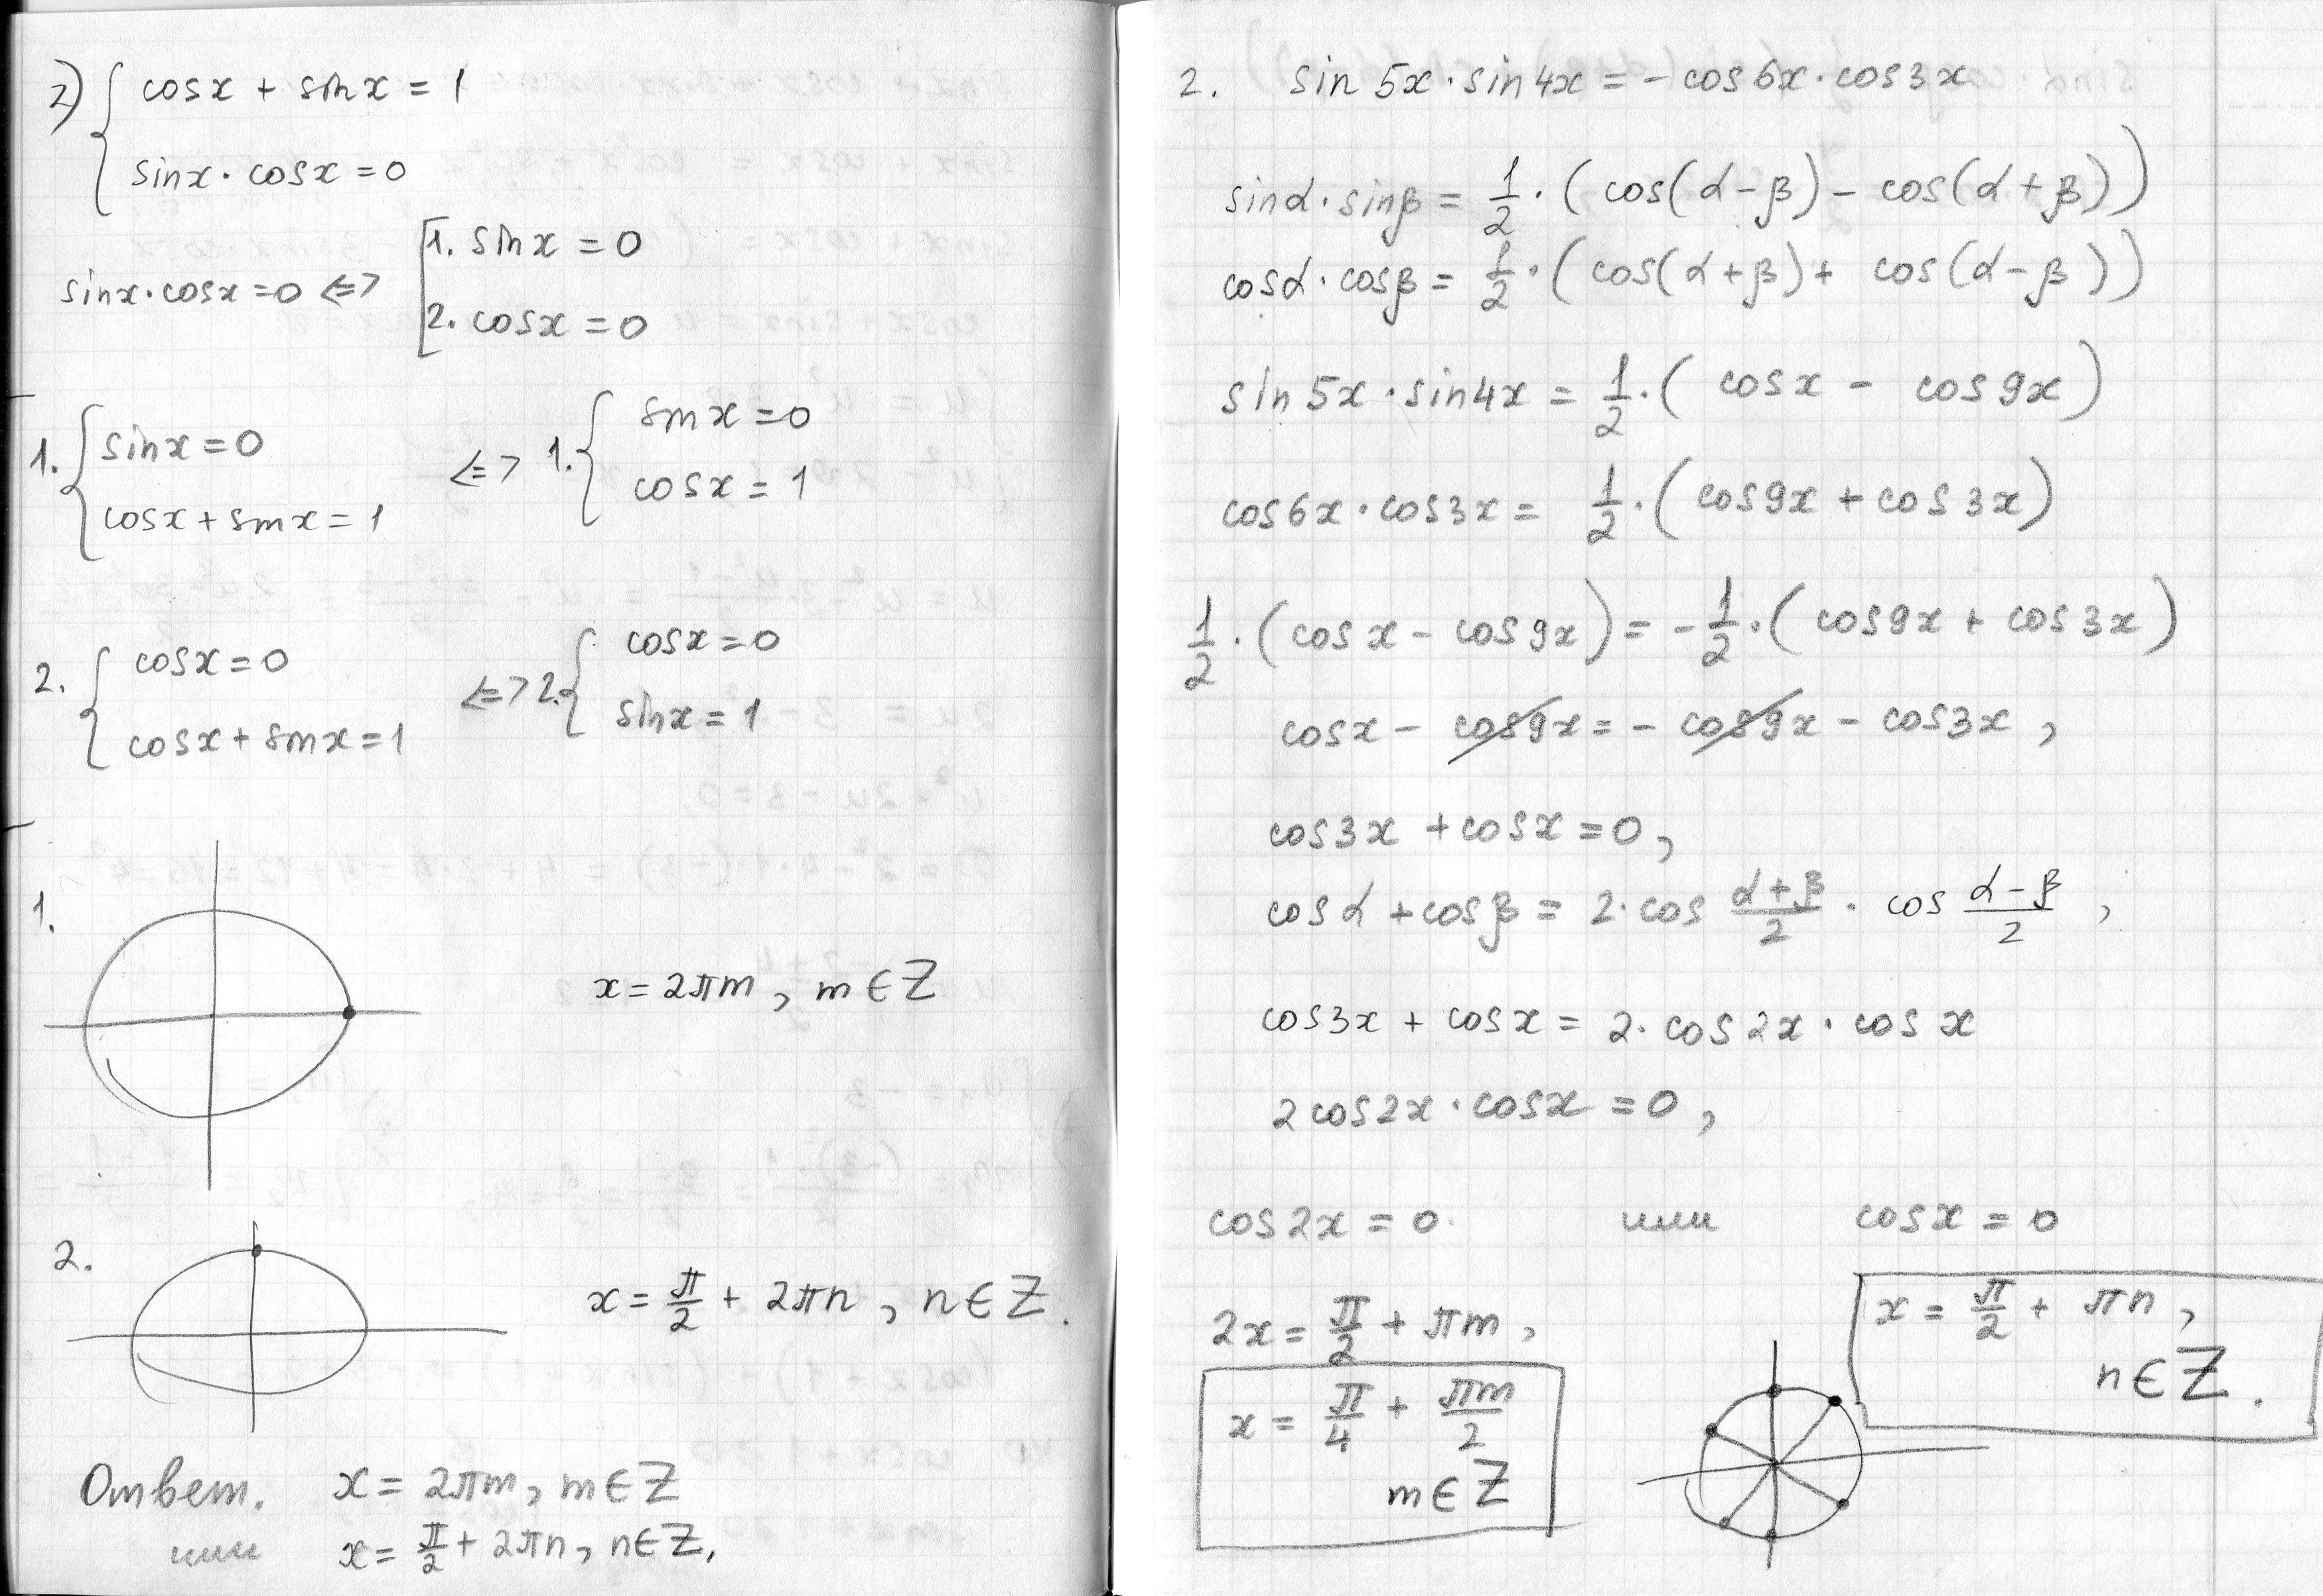 2) { cosx + sinx = 1
sinx · cosx = 0
sinx · cosx = 0 <=> [ 1. sinx = 0
2. cosx = 0
1. { sinx = 0
cosx + sinx = 1
<=> 1. { sinx = 0
cosx = 1
2. { cosx = 0
cosx + sinx = 1
<=> 2. { cosx = 0
sinx = 1
1.
x = 2πm, m ∈ Z
2.
x = π/2 + 2πn, n ∈ Z.
Ответ. x = 2πm, m ∈ Z
или x = π/2 + 2πn, n ∈ Z.
2. sin 5x · sin 4x = - cos 6x · cos 3x
sinα · sinβ = 1/2 · (cos(α - β) - cos(α + β))
cosα · cosβ = 1/2 · (cos(α + β) + cos(α - β))
sin 5x · sin 4x = 1/2 · (cos x - cos 9x)
cos 6x · cos 3x = 1/2 · (cos 9x + cos 3x)
1/2 · (cos x - cos 9x) = - 1/2 · (cos 9x + cos 3x)
cosx - cos9x = - cos9x - cos3x,
cos3x + cosx = 0,
cosα + cosβ = 2 · cos (α + β)/2 · cos (α - β)/2,
cos3x + cosx = 2 · cos 2x · cos x
2 cos2x · cosx = 0,
cos 2x = 0 или cos x = 0
2x = π/2 + πm,
x = π/4 + πm/2
m ∈ Z
x = π/2 + πn,
n ∈ Z.